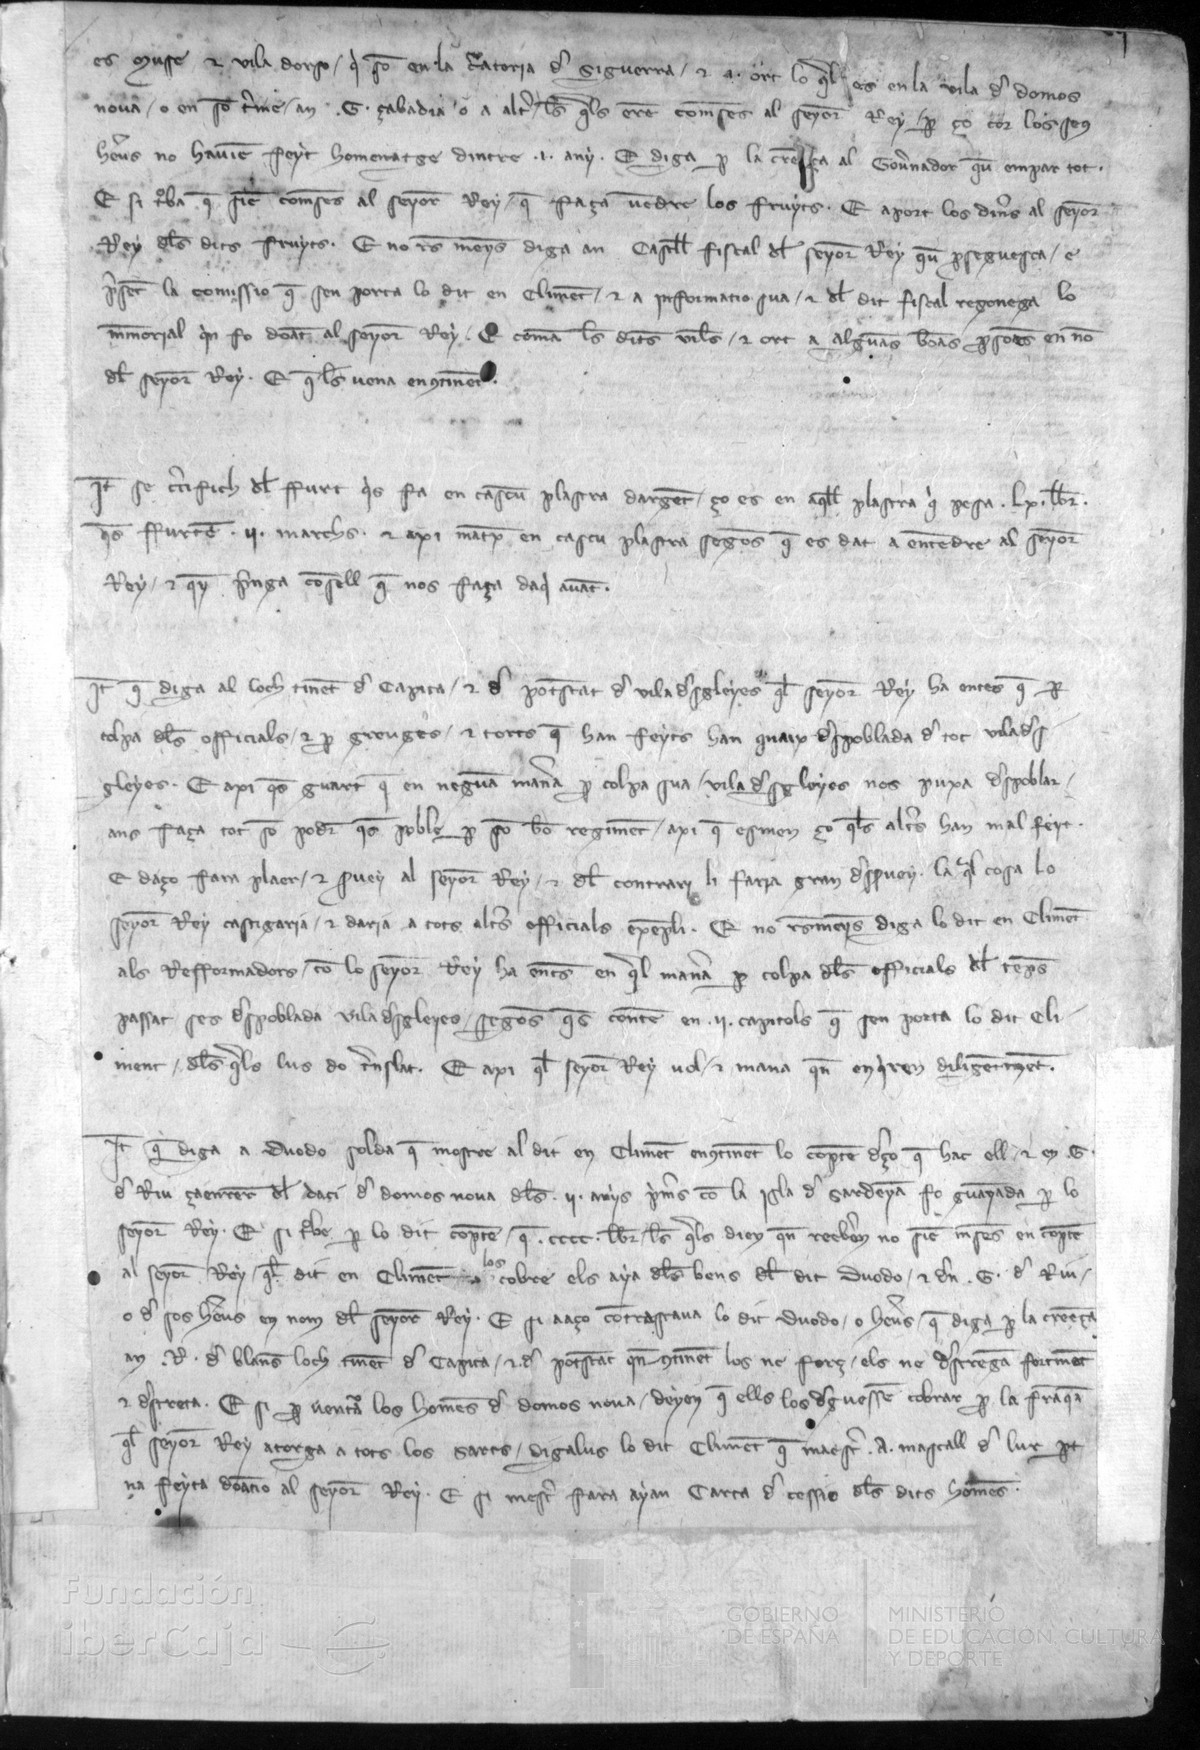 es Musse ⁊ vila dorso / q̇ so en la c̃atoria d̃ Siguerra / ⁊ .i. ort lo q̃l es en la vila d̃ domos
noua / o en so t̃me / an .G. çabadia o a alt̃ / ls̃ q̃ls ere comeses al seyor Rey / p̱ ço cor los seus
hẽus no hauiẽ feyt homenatge dintre .i. any. E diga p̱ la creẽça al Gou̾nador q̃u empar tot.
E si t̾ba q̃ siẽ comeses al seyor Rey / q̃ faça uẽdre los fruyts. E aport los din̾s al seyor
Rey dl̃s dits fruyts. E no r̃s meys diga an Castell fiscal dl̃ seyor Rey q̃u p̱seguesca / e
p̾set la comissio q̃ sen porta lo dit en Climẽt / ⁊ a informatio sua / ⁊ dl̃ dit fiscal regonega lo
memorial q̇n fo doat al seyor Rey. E coma ls̃ dits viles / ⁊ ort a alguas boas p̱soes en no
dl̃ seyor Rey. E q̃ ls̃ vena en9tinet.
It̃ se c̾tifich dl̃ ffurt q̇s fa en cascu plastra dargẽt / ço es en aq̃ll plastra q̇ pesa .Lx. lbr̃.
q̇s ffurtẽ .ij. marchs. ⁊ axi matx en cascu plastra segos q̃ es dat a entẽdre al seyor
Rey / ⁊ q̃y p̾nga cosell q̃ nos faça daq̇ auãt.
It̃ q̃ diga al loch tinẽt d̃ Capita / ⁊ d̃ potestat d̃ vila d̃sgleyes q̃l seyor Rey ha entes q̃ p̱
colpa dl̃s officials / ⁊ p̱ greuges / ⁊ torts q̃ han feyts han quaix d̃spoblada d̃ tot vila d̃s
gleyes. E axi q̃s guart q̃ en neguã man̾a p̱ colpa sua / vila d̃sgleyes nos puxa d̃spoblar /
ans faça tot so poder q̃s poble p̱ so bo regimẽt / axi q̃ esmen ço q̃ls alt̾s han mal feyt.
E daço fara plaer / ⁊ s̾uey al seyor Rey / ⁊ dl̃ contrari li faria gran d̃ss̾uey. la q̃l cosa lo
seyor Rey castigaria / ⁊ daria a tots alt̾s officials exẽpli. E no r̃smeys diga lo dit en Climẽt
als Refformadors / co lo seyor Rey ha entẽs en q̃l man̾a p̱ colpa dl̃s officials dl̃ temps
passat ses d̃spoblada vila d̃sgleyes / segos q̃s conte en .ij. capitols q̃ sen porta lo dit Cli /
ment / dl̃s q̃ls lus do t̾nslat. E axi q̃l seyor Rey vol / ⁊ mana q̃n enq̇ren diligẽtmẽt.
It̃ q̃ diga a Duodo solda q̃ mostre al dit en Climẽt en9tinẽt lo copte d̃ço q̃ hac ell / ⁊ en G.
d̃ Riu çaenrer dl̃ daci d̃ domos noua dl̃s .ij. anys p̾m̾s co la isla d̃ Sardeya fo guayada p̱ lo
seyor Rey. E si t̾be p̱ lo dit copte / q̃ .cccc. lbr̃ / ls̃ q̃ls dien q̃n reebẽn no siẽ meses en copte
al seyor Rey / q̃l dit en Climẽt los cobre els aya dl̃s bens dl̃ dit Duodo / ⁊ dẽn .G. d̃ Riu /
o d̃ sos heus en nom dl̃ seyor Rey. E si aaço cotrastaua lo dit Duodo / o heus / q̃ diga p̱ la creẽça
an .R. d̃ blans loch tinẽt d̃ Capita / ⁊ d̃ potestat q̃n 9tinẽt los ne forç / els ne d̃strenga fortmẽt
⁊ d̃streta. E si p̱ vent̾a los homẽs d̃ domos noua / deyen q̃ ells los d̃guessẽ cobrar p̱ la fraq̃a
q̃l seyor Rey atorga a tots los Sarts / digalus lo dit Climẽt q̃ maest̾ .A. mascall d̃ lur p̱t
na feyta doatio al seyor Rey. E si mest̾ fara ayan Carta d̃ cessio dl̃s dits homẽs.
Fundación
iberCaja
GOBIERNO
DE ESPAÑA
MINISTERIO
DE EDUCACIÓN, CULTURA
Y DEPORTE